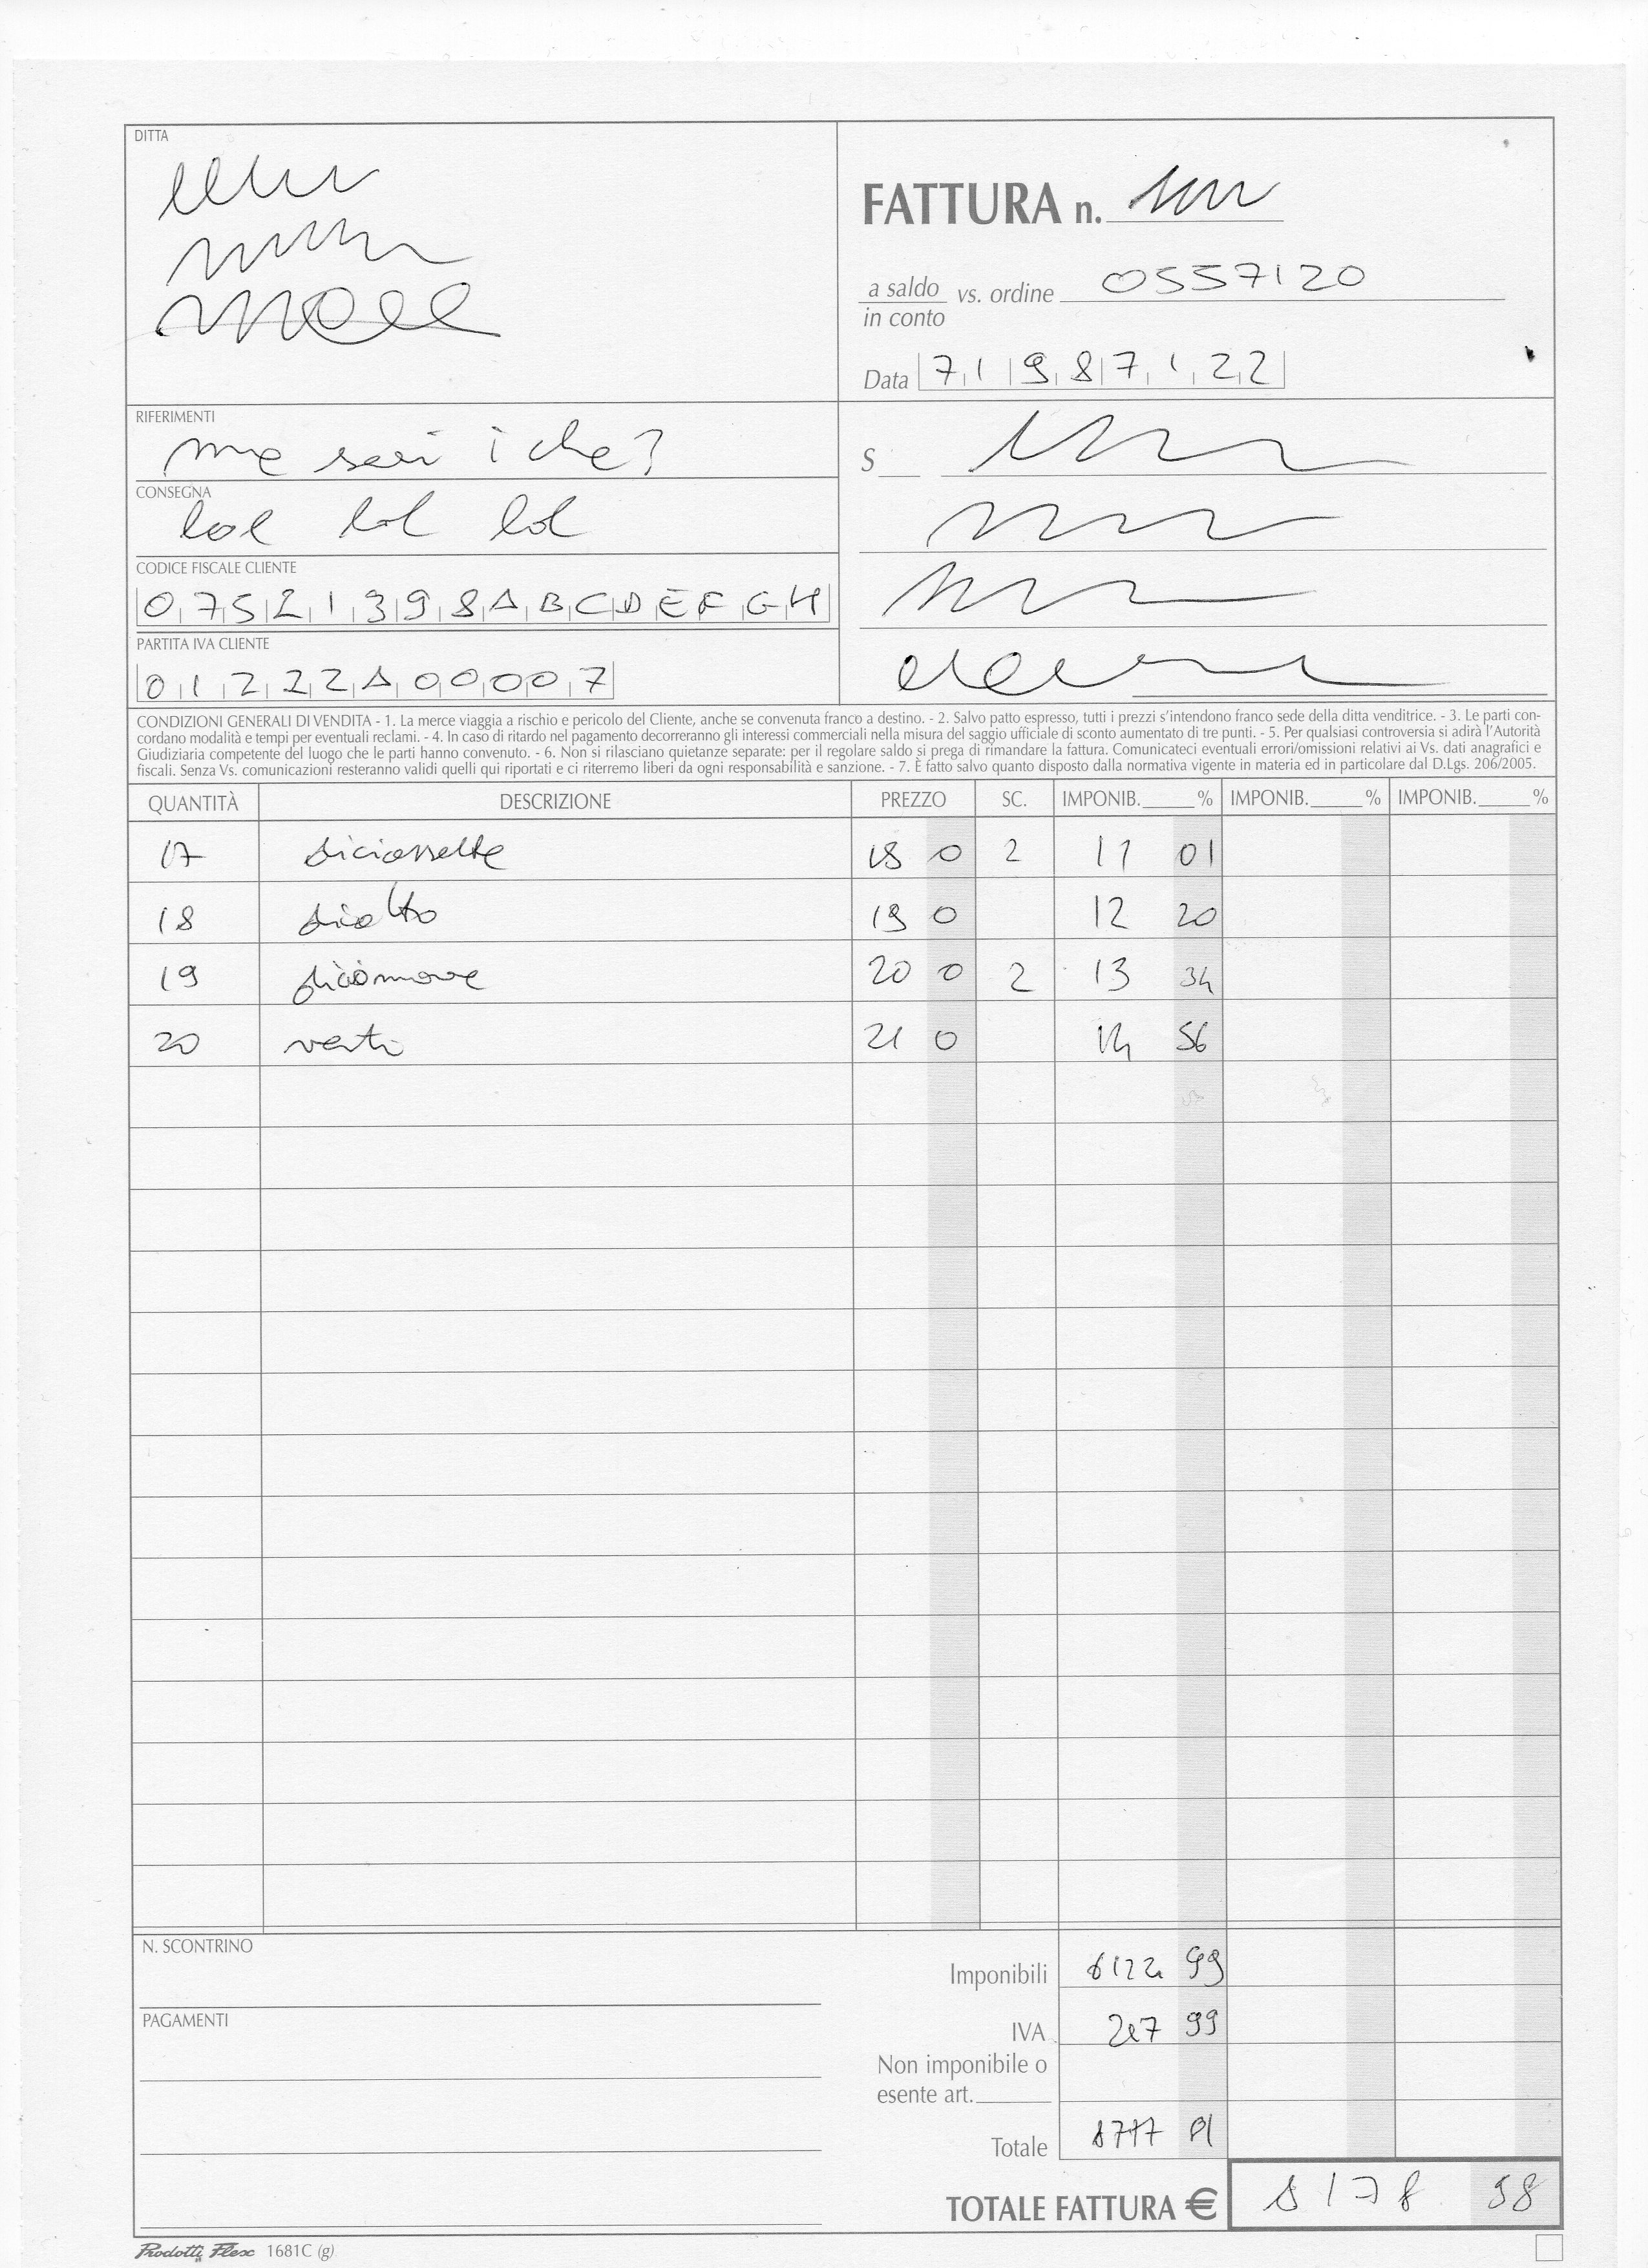 DITTA
FATTURA n.
a saldo vs. ordine 0557120
in conto
Data 7 1 9 8 7 1 2 2
RIFERIMENTI
me seri i che?
S
CONSEGNA
lol lol lol
CODICE FISCALE CLIENTE
0 7 5 2 1 3 9 8 A B C D E F G H
PARTITA IVA CLIENTE
0 1 2 2 2 A 0 0 0 0 7
CONDIZIONI GENERALI DI VENDITA - 1. La merce viaggia a rischio e pericolo del Cliente, anche se convenuta franco a destino. - 2. Salvo patto espresso, tutti i prezzi s'intendono franco sede della ditta venditrice. - 3. Le parti con-
cordano modalità e tempi per eventuali reclami. - 4. In caso di ritardo nel pagamento decorreranno gli interessi commerciali nella misura del saggio ufficiale di sconto aumentato di tre punti. - 5. Per qualsiasi controversia si adirà l'Autorità
Giudiziaria competente del luogo che le parti hanno convenuto. - 6. Non si rilasciano quietanze separate: per il regolare saldo si prega di rimandare la fattura. Comunicateci eventuali errori/omissioni relativi ai Vs. dati anagrafici e
fiscali. Senza Vs. comunicazioni resteranno validi quelli qui riportati e ci riterremo liberi da ogni responsabilità e sanzione. - 7. È fatto salvo quanto disposto dalla normativa vigente in materia ed in particolare dal D.Lgs. 206/2005.
QUANTITÀ DESCRIZIONE PREZZO SC. IMPONIB. % IMPONIB. % IMPONIB. %
17 diciassette 18 0 2 11 01
18 diciotto 19 0 12 20
19 diciannove 20 0 2 13 34
20 venti 21 0 14 56
N. SCONTRINO
Imponibili 6122 99
PAGAMENTI
IVA 99
Non imponibile o
esente art.
Totale
TOTALE FATTURA € 98
Prodotti Flex 1681C (g)